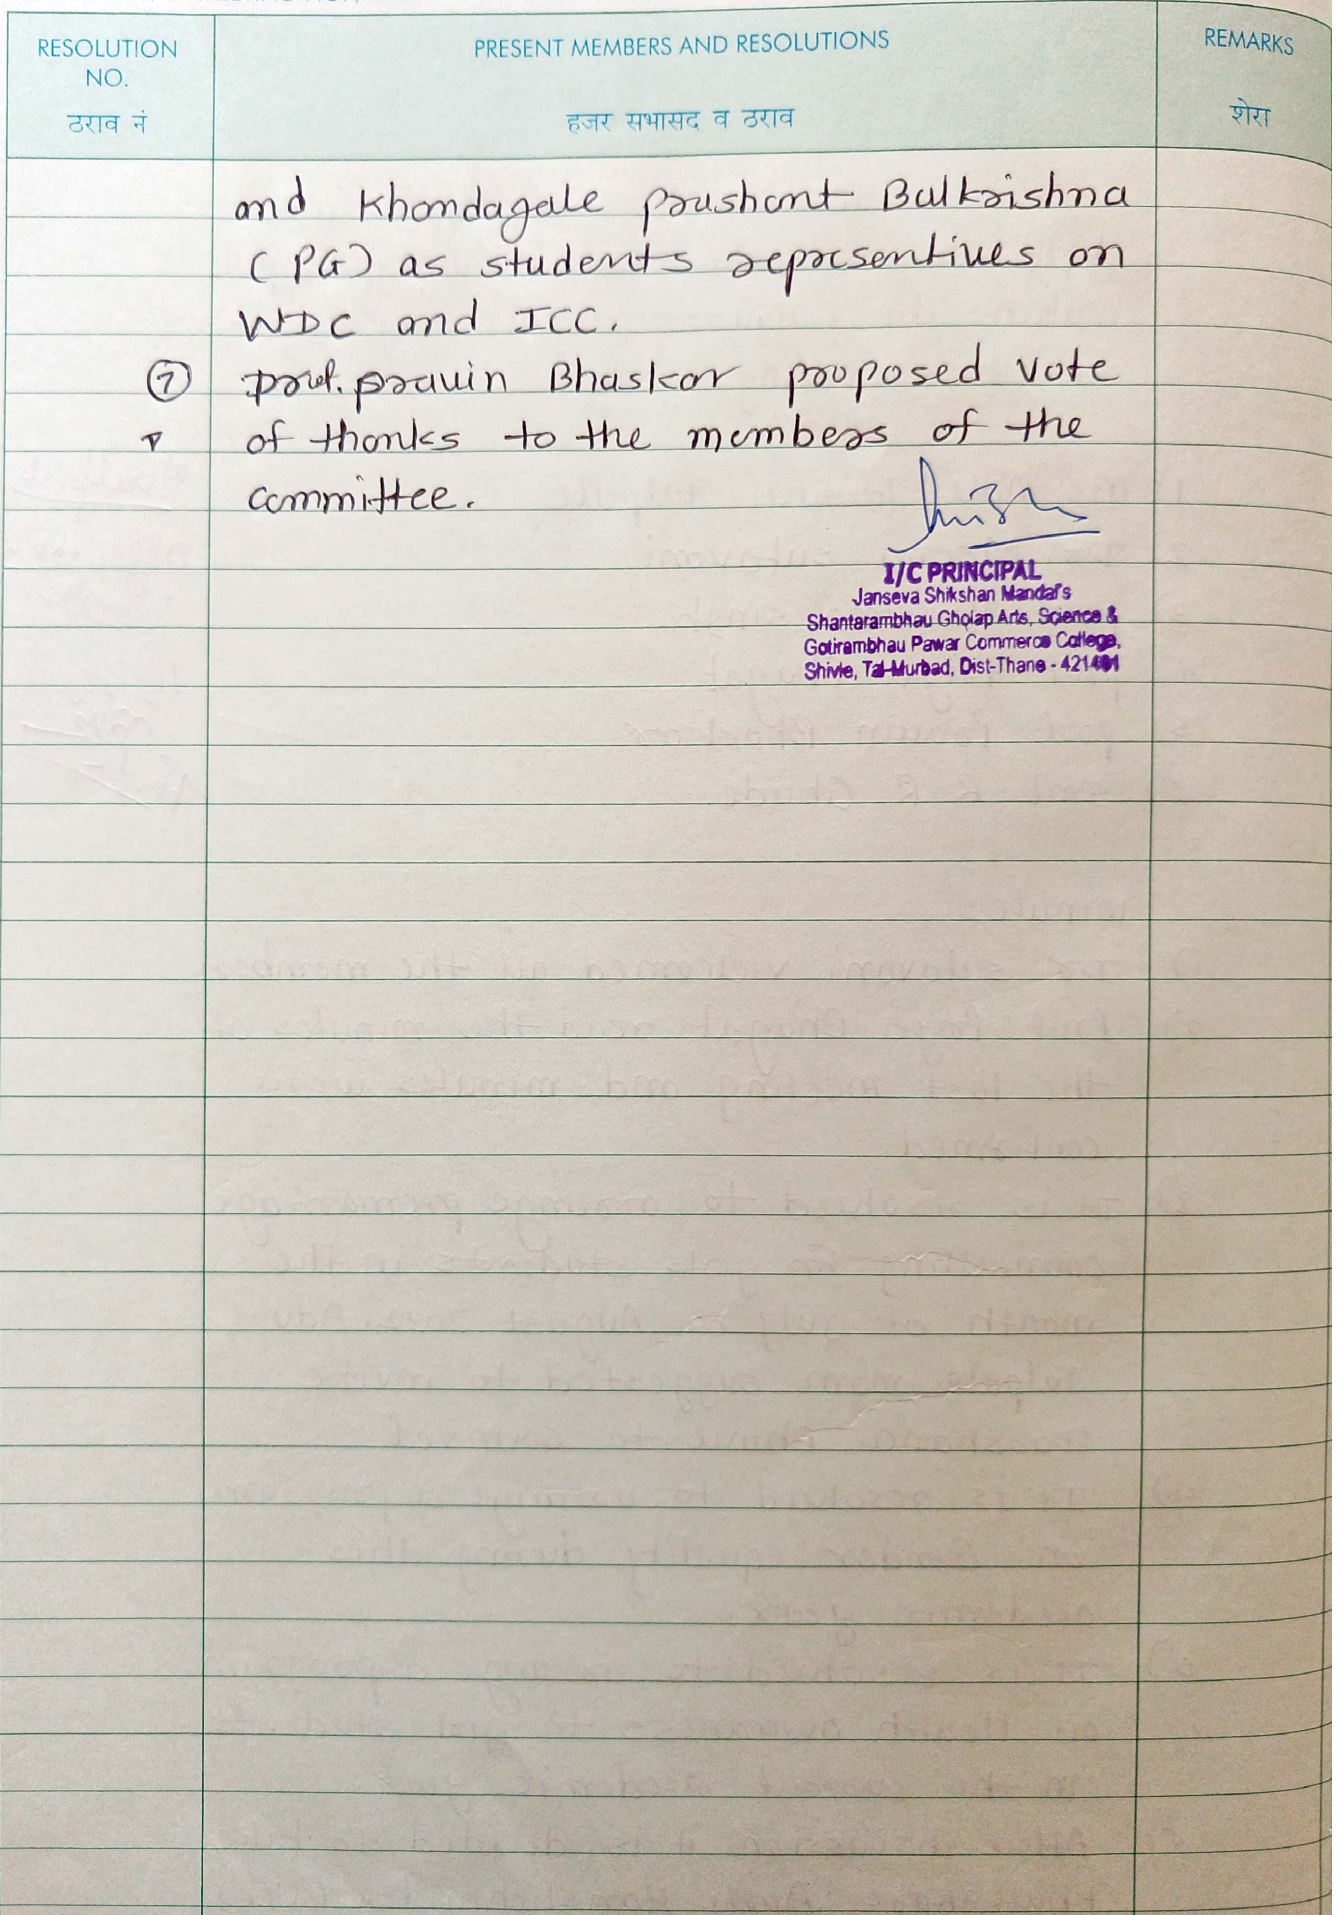 RESOLUTION
NO.
ठराव नं
PRESENT MEMBERS AND RESOLUTIONS
हजर सभासद व ठराव
REMARKS
शेरा
and Khandagale prashant Balkrishna
(PG) as students represntives on
WDC and ICC.
7 prof. pravin Bhaskar proposed vote
of thanks to the members of the
committee.
I/C PRINCIPAL
Janseva Shikshan Mandal's
Shantarambhau Gholap Arts, Science &
Gotirambhau Pawar Commerce College,
Shivle, Tal-Murbad, Dist-Thane - 421401